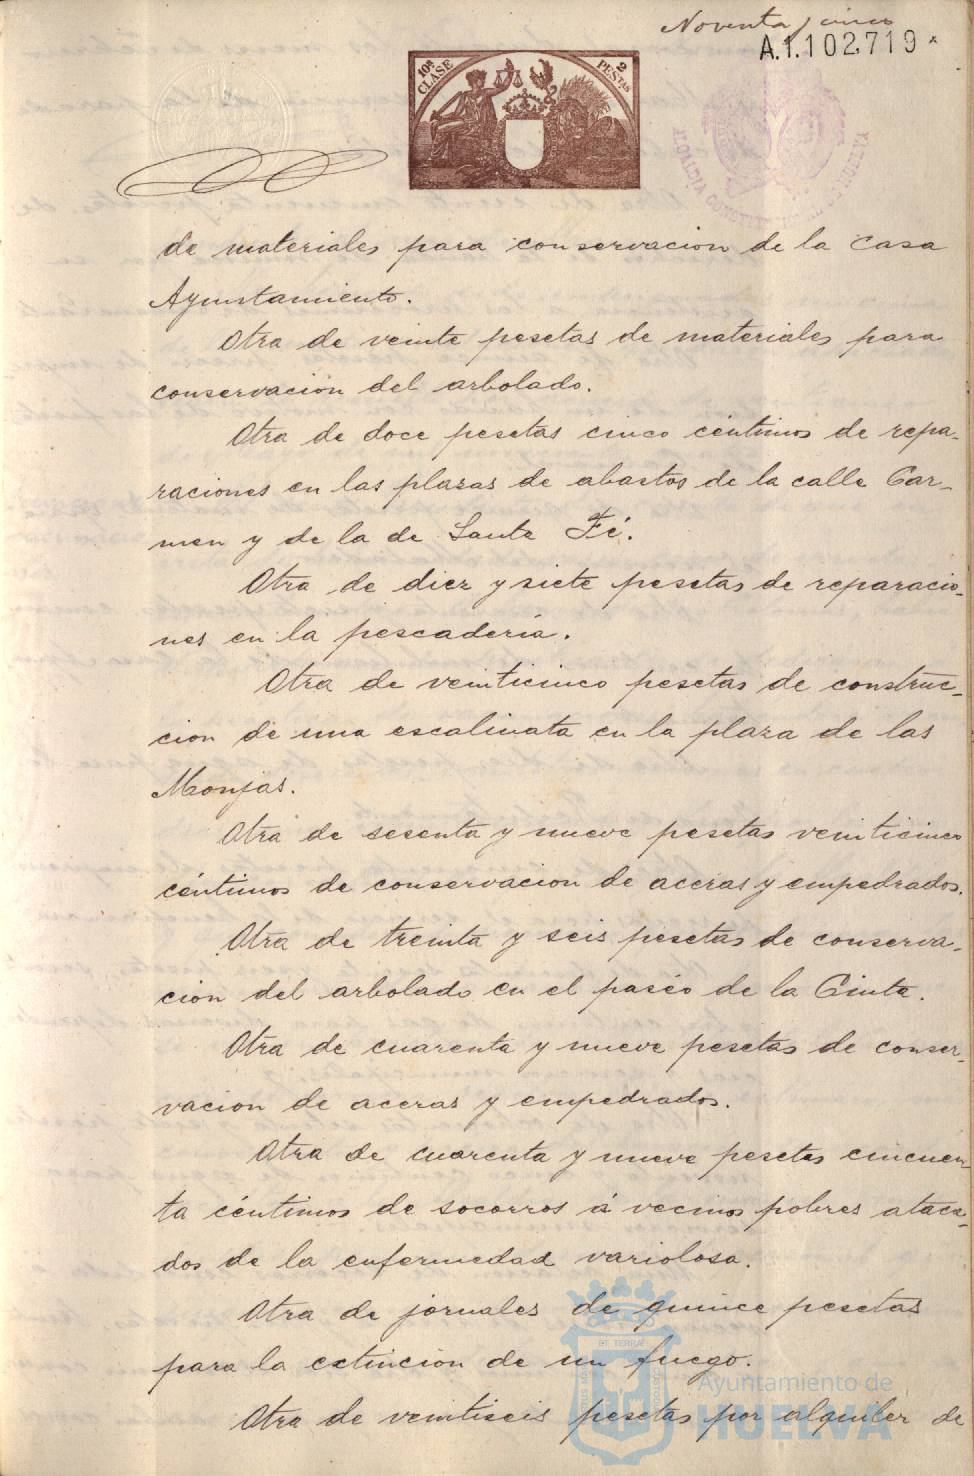 Noventa y cinco
A.1.102,719 *
10ª CLASE
2 PESTAS
ALCALDIA CONSTITUCIONAL DE HUELVA
de materiales para conservacion de la Casa
Ayuntamiento.
Otra de veinte pesetas de materiales para
conservación del arbolado.
Otra de doce pesetas cinco céntimos de repa-
raciones en las plazas de abastos de la calle Car-
men y de la de Santa Fé.
Otra de diez y siete pesetas de reparacio-
nes en la pescadería.
Otra de veinticinco pesetas de construc-
cion de una escalinata en la plaza de las
Monjas.
Otra de sesenta y nueve pesetas veinticinco
céntimos de conservacion de aceras y empedrados.
Otra de treinta y seis pesetas de conserva-
ción del arbolado en el paséo de la Cinta.
Otra de cuarenta y nueve pesetas de conser-
vacion de aceras y empedrados.
Otra de cuarenta y nueve pesetas cincuen-
ta céntimos de socorros á vecinos pobres ataca-
dos de la enfermedad variolosa.
Otra de jornales de quince pesetas
para la extincion de un fuego.
Otra de veintiseis pesetas por alquiler de
Ayuntamiento de
HUELVA